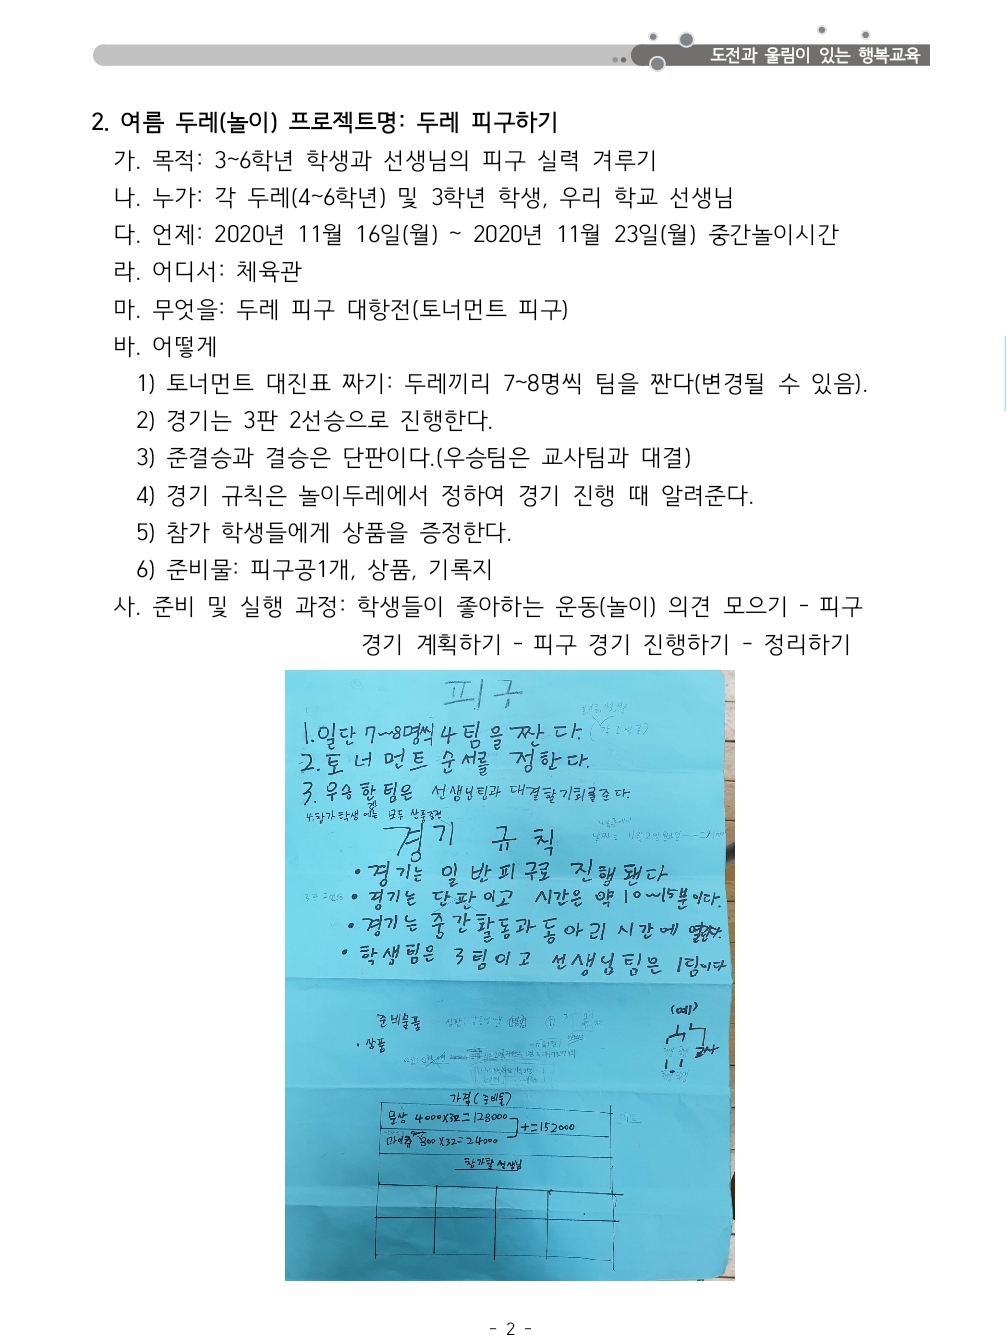 도전과 울림이 있는 행복교육
2. 여름 두레(놀이) 프로젝트명: 두레 피구하기
가. 목적: 3~6학년 학생과 선생님의 피구 실력 겨루기
나. 누가: 각 두레(4~6학년) 및 3학년 학생, 우리 학교 선생님
다. 언제: 2020년 11월 16일(월) ~ 2020년 11월 23일(월) 중간놀이시간
라. 어디서: 체육관
마. 무엇을: 두레 피구 대항전(토너먼트 피구)
바. 어떻게
1) 토너먼트 대진표 짜기: 두레끼리 7~8명씩 팀을 짠다(변경될 수 있음).
2) 경기는 3판 2선승으로 진행한다.
3) 준결승과 결승은 단판이다.(우승팀은 교사팀과 대결)
4) 경기 규칙은 놀이두레에서 정하여 경기 진행 때 알려준다.
5) 참가 학생들에게 상품을 증정한다.
6) 준비물: 피구공1개, 상품, 기록지
사. 준비 및 실행 과정: 학생들이 좋아하는 운동(놀이) 의견 모으기 - 피구
경기 계획하기 - 피구 경기 진행하기 - 정리하기
피구
1. 일단 7~8명씩 4팀을 짠다.
2. 토너먼트 순서를 정한다.
3. 우승한팀은 선생님팀과 대결할기회를준다.
4. 참가 학생에게는 모두 상품증정
경기 규칙
• 경기는 일반피구로 진행됀다
• 경기는 단판이고 시간은 약 10~15분이다.
• 경기는 중간활동과 동아리 시간에 열린다.
• 학생팀은 3팀이고 선생님팀은 1팀이다
준비물품
(예)
• 상품
교사
가격(준비물)
문상 4000X32=128000
+=152000
800X32=24000
참가할 선생님
- 2 -